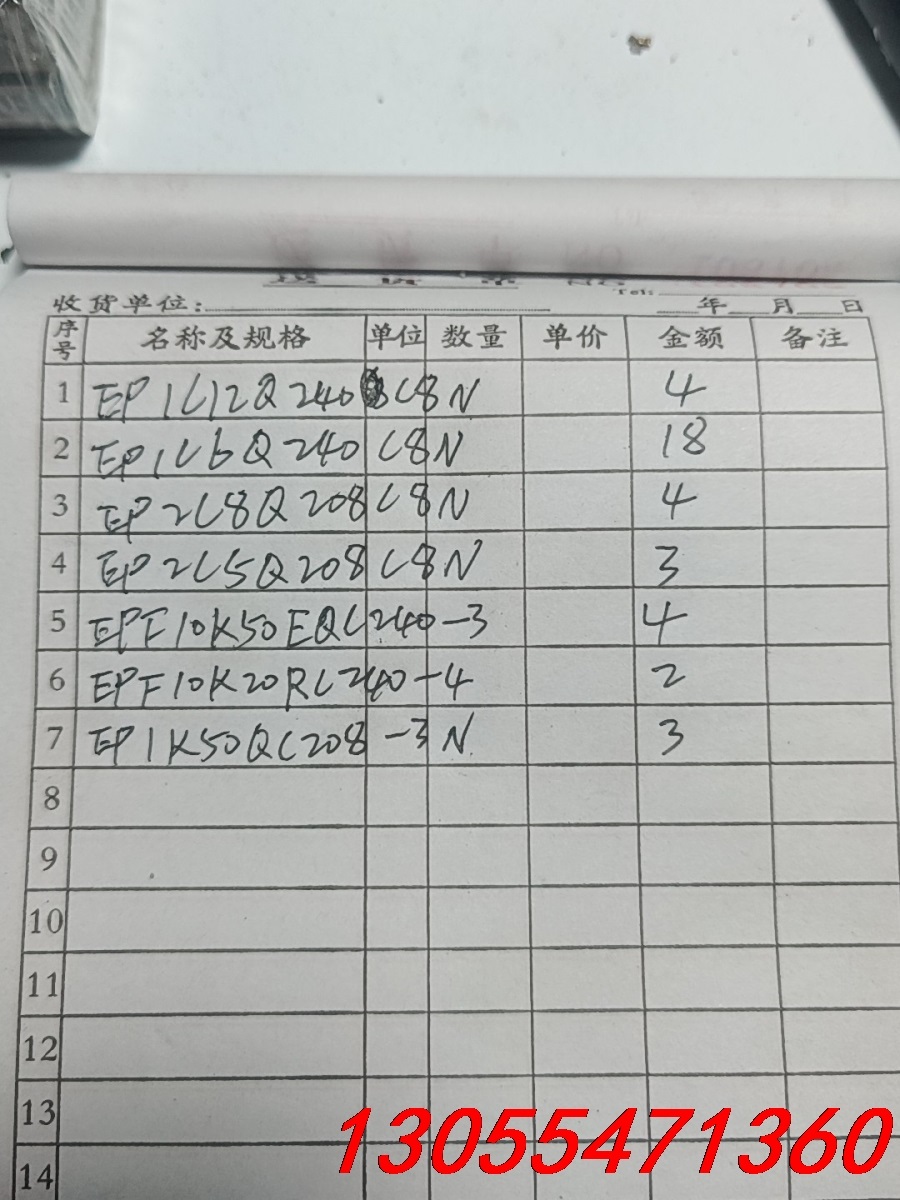 Tel:
收货单位: 年 月 日
序号 名称及规格 单位 数量 单价 金额 备注
1 EP1C12Q240 C8N 4
2 EP1C6Q240 C8N 18
3 EP2C8Q208 C8N 4
4 EP2C5Q208 C8N 3
5 EPF10K50EQC240-3 4
6 EPF10K20RC240-4 2
7 EP1K50QC208 -3N 3
8
9
10
11
12
13
14
13055471360